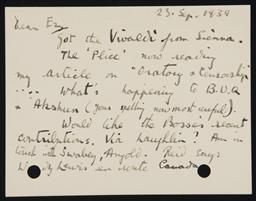 23. Sep. 1939
Dear Ez,
Got the Vivaldi from Sienna.
The 'Plice' now reading
my article on "Oratory & censorship"
.... What's happening to B.U.Q
& 'Akshun (your spelling now most useful).
Would like the Bosse's recent
contributions. Via Laughlin? Am in
touch with Swabey, Angold. Reid says
Wyndham Lewis en route Canada